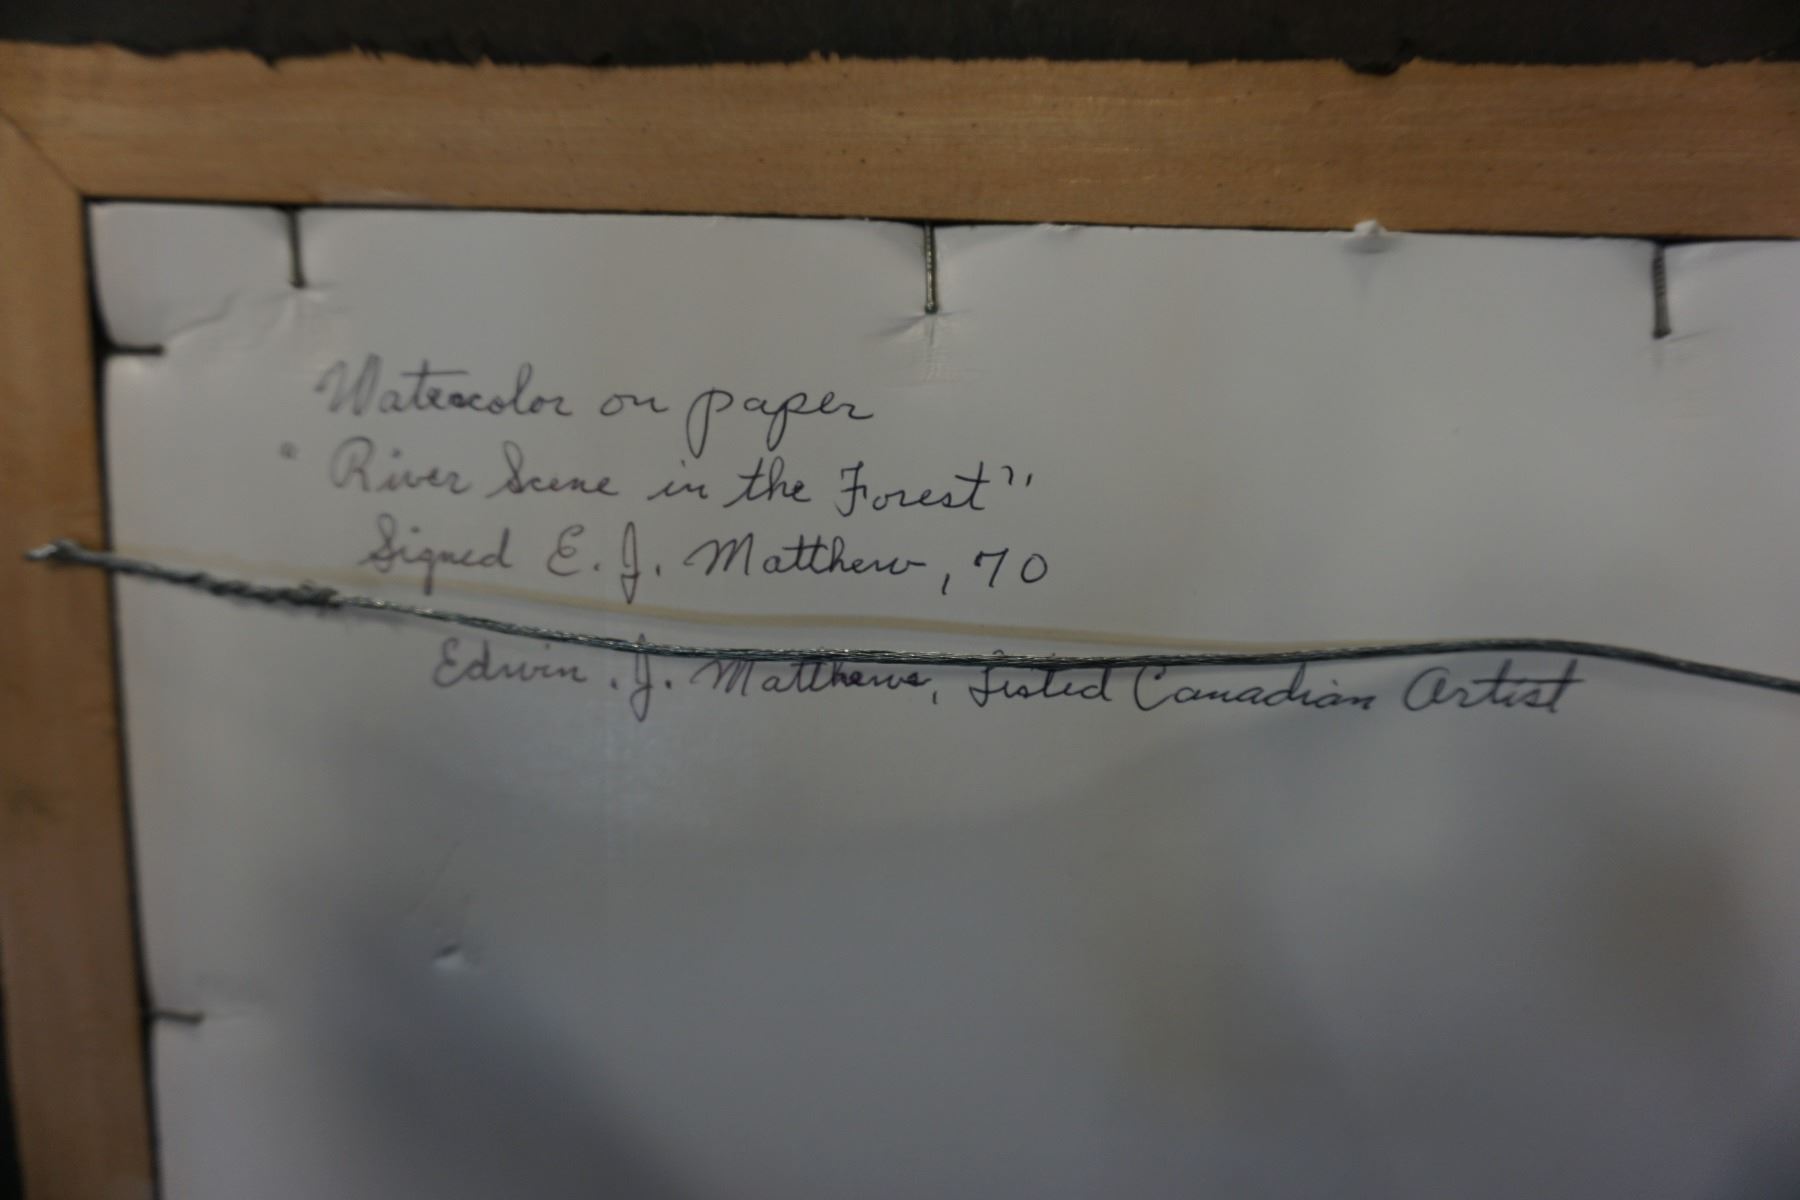 Watercolor on paper
"River Scene in the Forest"
Signed E. J. Matthew, 70
Edwin. J. Matthews, Listed Canadian Artist